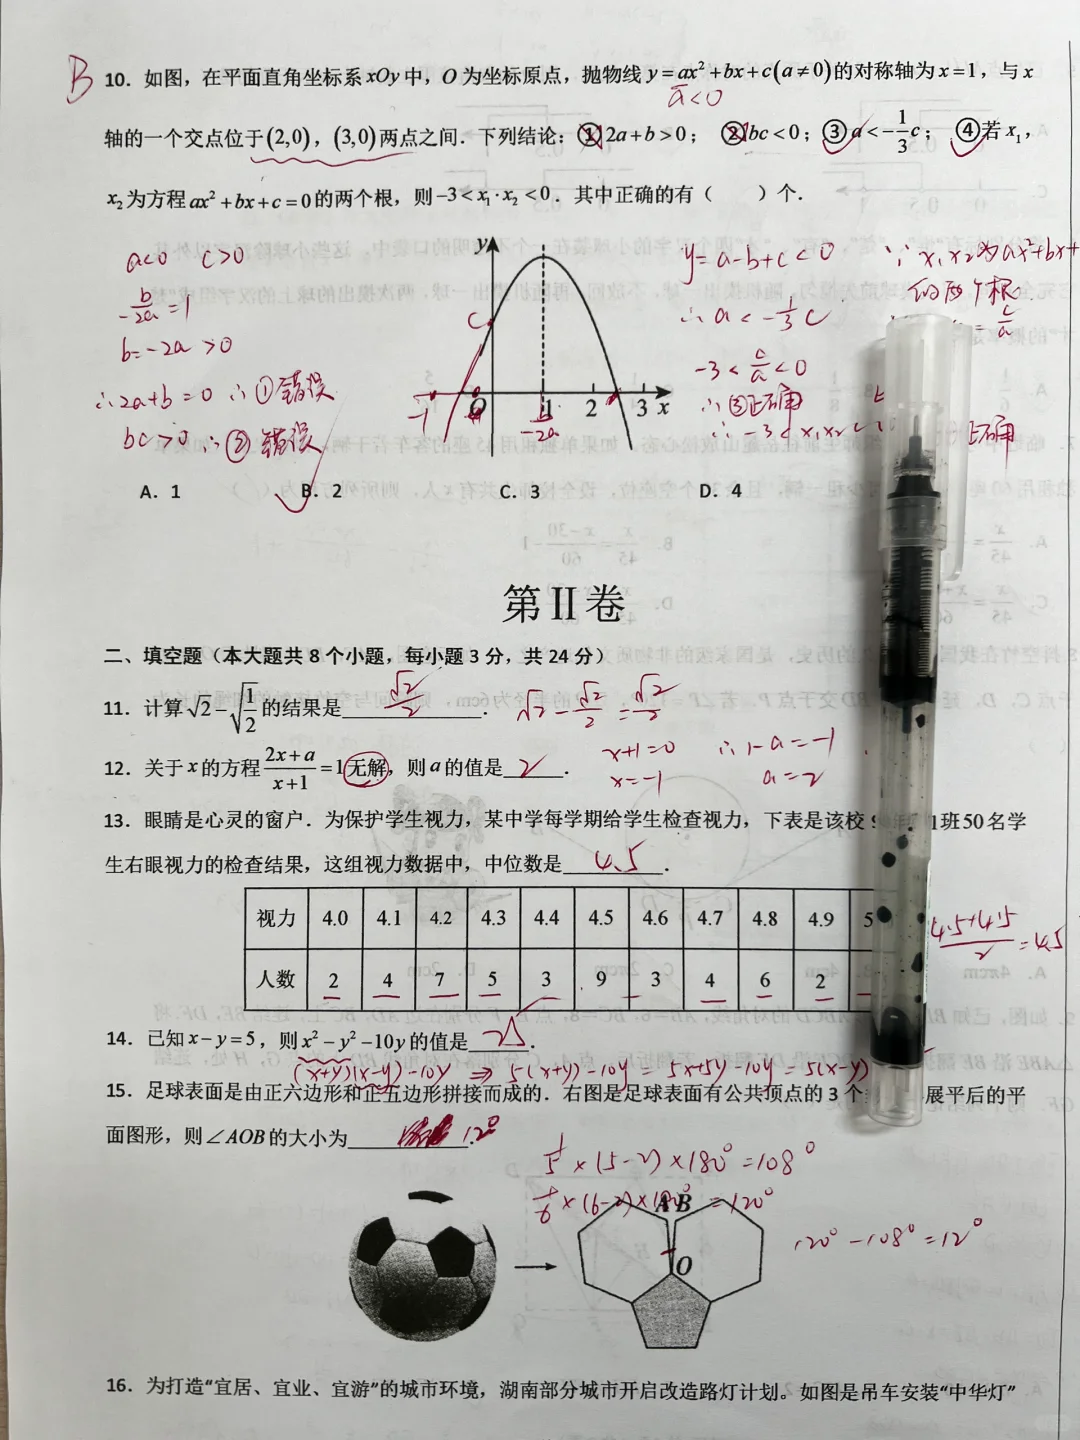 B
10．如图，在平面直角坐标系 xOy 中，O 为坐标原点，抛物线 y＝ax²＋bx＋c(a≠0)的对称轴为 x＝1，与 x
a<0
轴的一个交点位于(2,0)，(3,0)两点之间．下列结论：①2a＋b＞0；②bc＜0；③a＜－1/3c；④若 x₁，
x₂为方程 ax²＋bx＋c＝0 的两个根，则 －3＜x₁·x₂＜0．其中正确的有（　　）个．
a<0　c>0
-b/2a=1
b=-2a>0
∴2a+b=0 ∴①错误
bc>0 ∴②错误
y
c
-1　O　1　2　3　x
b/-2a
y=a-b+c<0
∴a<-1/3c
-3<c/a<0
∴③正确
∴-3<x₁x₂<
∵x₁x₂为ax²+bx+
的两个根
=c/a
正确
A．1　B．2　C．3　D．4
第 II 卷
二、填空题（本大题共 8 个小题，每小题 3 分，共 24 分）
11．计算√2－√(1/2)的结果是 √2/2 ．　√2-√2/2=√2/2
12．关于 x 的方程(2x＋a)/(x＋1)＝1无解，则 a 的值是 2 ．
x+1=0　∴1-a=-1
x=-1　a=2
13．眼睛是心灵的窗户．为保护学生视力，某中学每学期给学生检查视力，下表是该校 9 1班50名学
生右眼视力的检查结果，这组视力数据中，中位数是 4.5 ．
视力　4.0　4.1　4.2　4.3　4.4　4.5　4.6　4.7　4.8　4.9　5
人数　2　4　7　5　3　9　3　4　6　2
(4.5+4.5)/2=4.5
14．已知 x－y＝5，则 x²－y²－10y 的值是 25 ．
(x+y)(x-y)-10y ⇒ 5(x+y)-10y=5x+5y-10y=5(x-y)
15．足球表面是由正六边形和正五边形拼接而成的．右图是足球表面有公共顶点的 3 个 展平后的平
面图形，则∠AOB 的大小为 12° ．
1/5×(5-2)×180°=108°
1/6×(6-2)×180°=120°
120°-108°=12°
A B
O
16．为打造“宜居、宜业、宜游”的城市环境，湖南部分城市开启改造路灯计划．如图是吊车安装“中华灯”